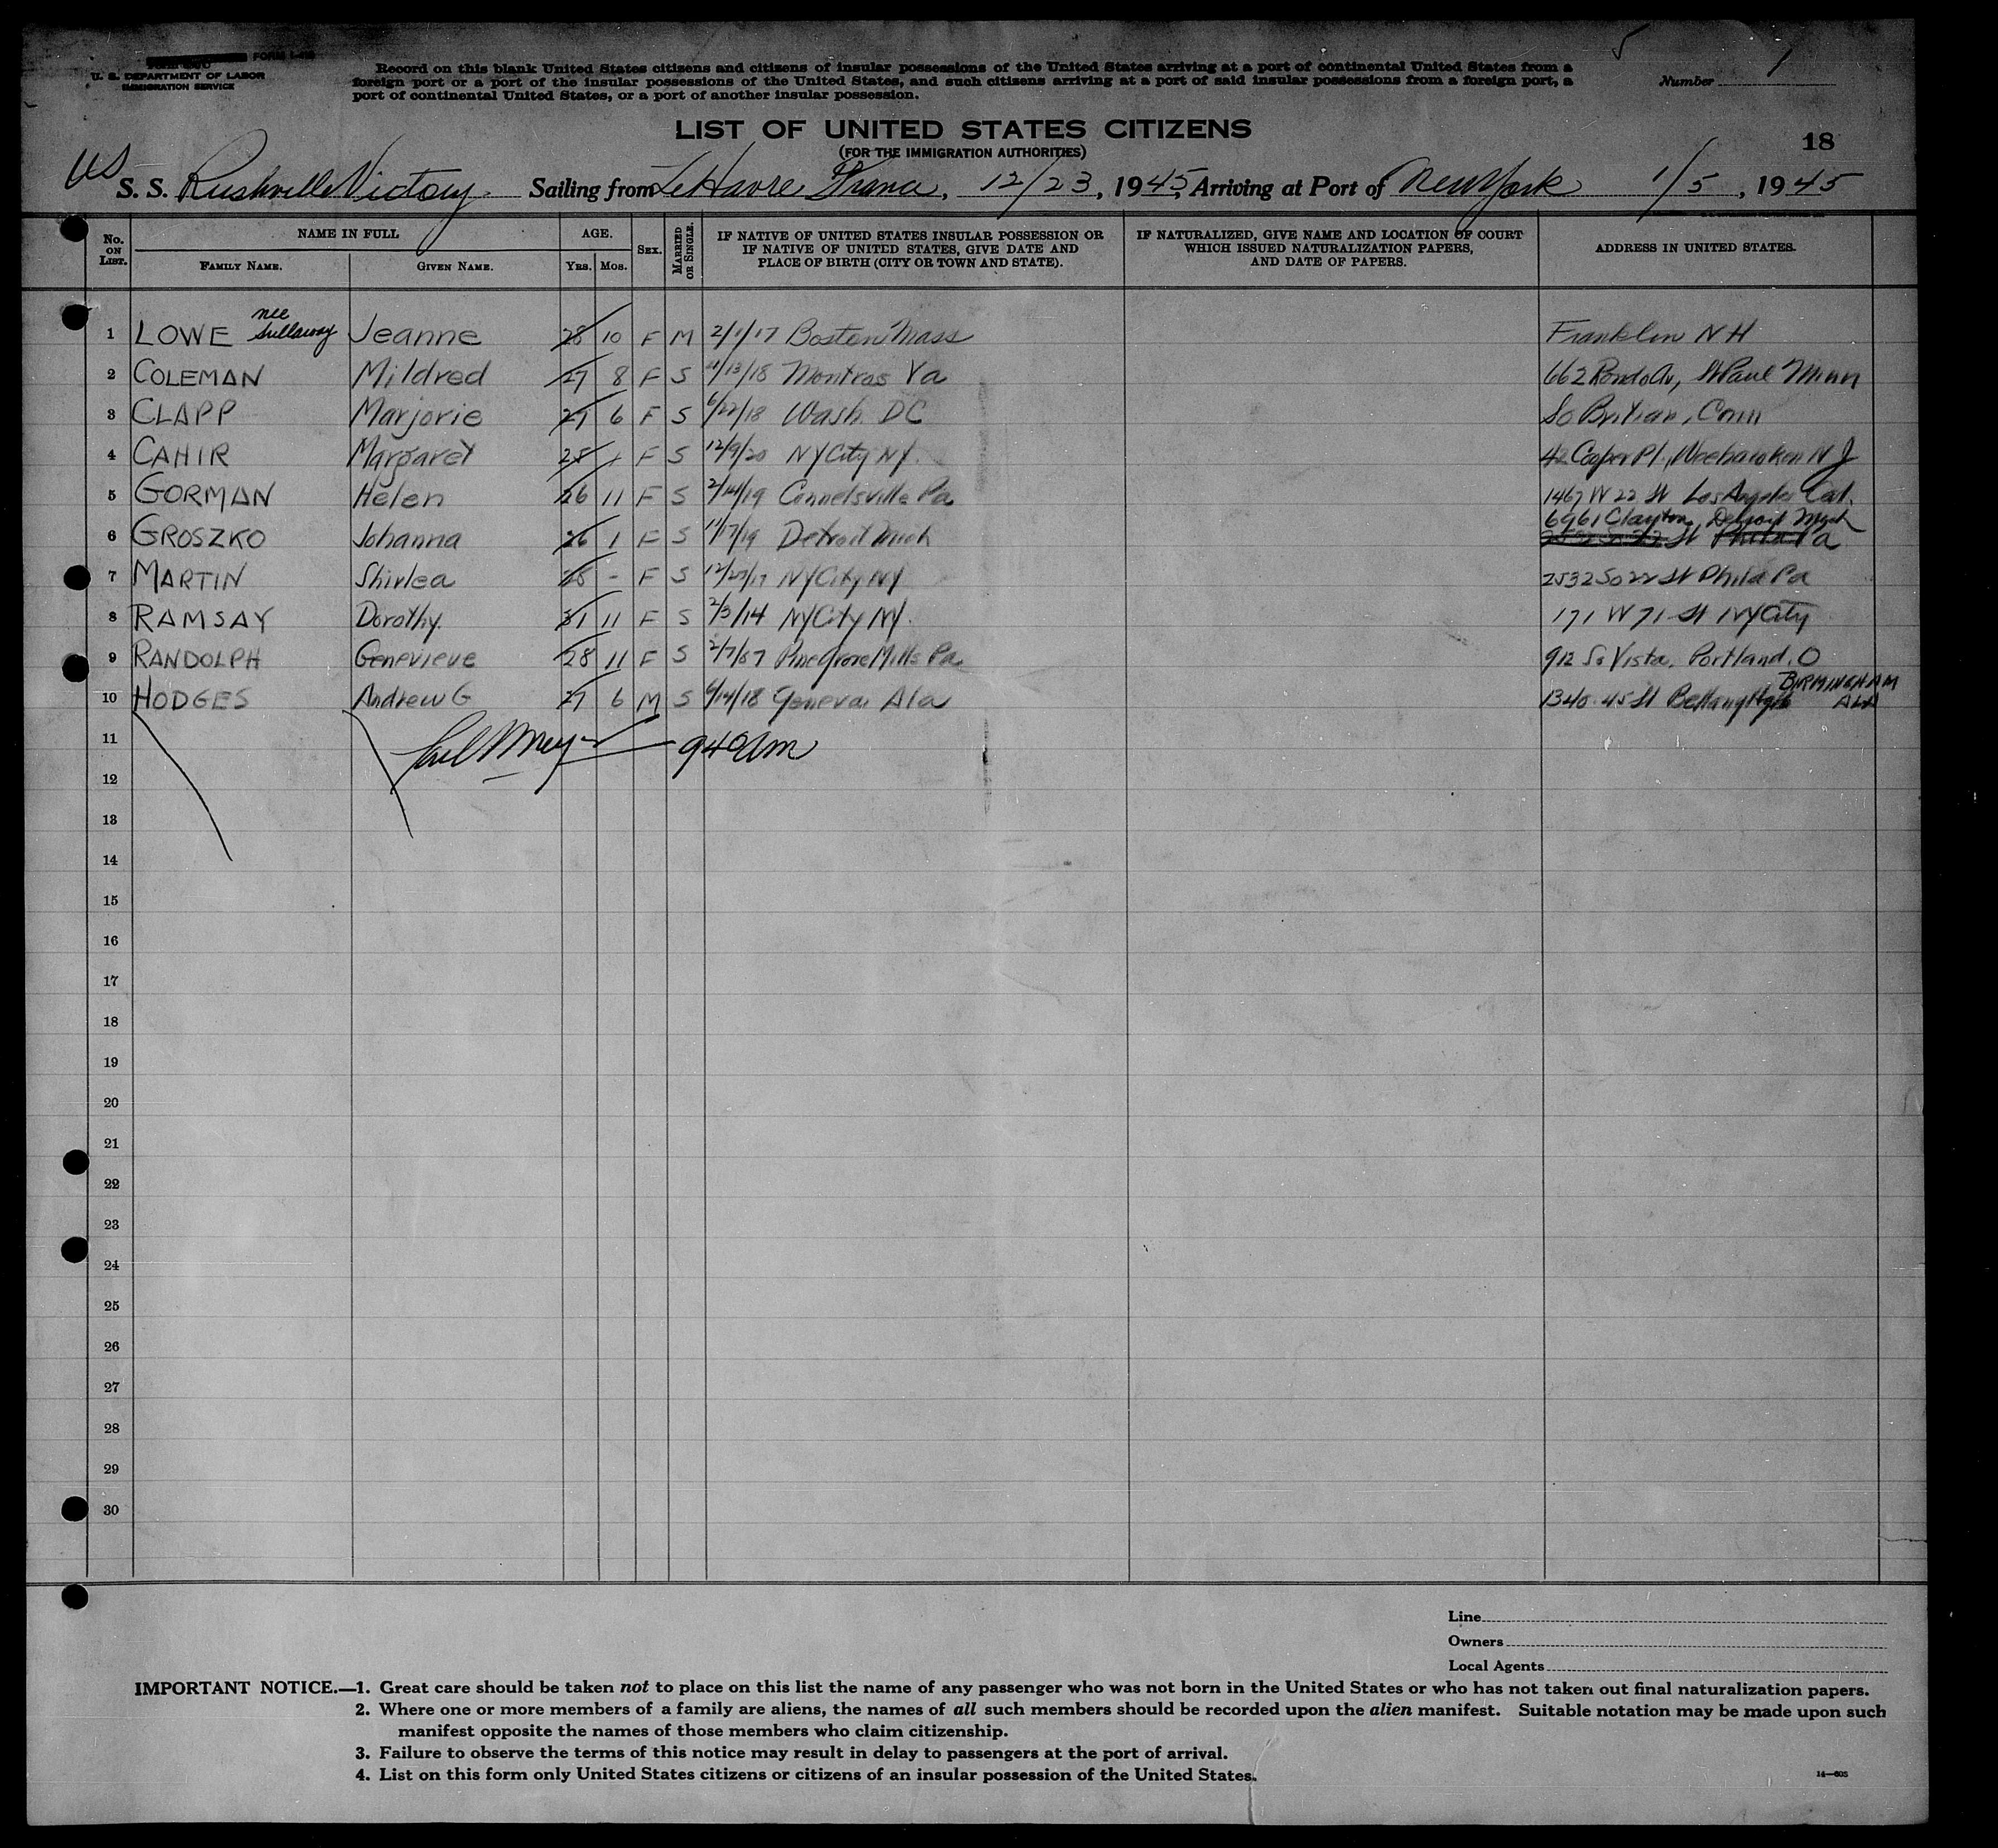 FORM I-415
U. S. DEPARTMENT OF LABOR
IMMIGRATION SERVICE
Record on this blank United States citizens and citizens of insular possessions of the United States arriving at a port of continental United States from a
foreign port or a port of the insular possessions of the United States, and such citizens arriving at a port of said insular possessions from a foreign port, a
port of continental United States, or a port of another insular possession.
5
Number 1
LIST OF UNITED STATES CITIZENS
(FOR THE IMMIGRATION AUTHORITIES)
18
US
S. S. Rushville Victory Sailing from Le Havre France, 12/23, 1945, Arriving at Port of New York 1/5, 1945
No. ON LIST. NAME IN FULL AGE. SEX. MARRIED OR SINGLE. IF NATIVE OF UNITED STATES INSULAR POSSESSION OR IF NATIVE OF UNITED STATES, GIVE DATE AND PLACE OF BIRTH (CITY OR TOWN AND STATE). IF NATURALIZED, GIVE NAME AND LOCATION OF COURT WHICH ISSUED NATURALIZATION PAPERS, AND DATE OF PAPERS. ADDRESS IN UNITED STATES.
FAMILY NAME. GIVEN NAME. YRS. MOS.
1 LOWE nee Sullaway Jeanne 28 10 F M 2/1/17 Boston Mass Franklin N H
2 COLEMAN Mildred 27 8 F S 11/13/18 Montras Va 662 Rondo Av, St Paul Minn
3 CLAPP Marjorie 27 6 F S 6/22/18 Wash. DC So Britian, Conn
4 CAHIR Margaret 25 F S 12/9/20 NY City NY. 42 Cooper Pl., Weehawken N J
5 GORMAN Helen 26 11 F S 2/14/19 Connelsville Pa 1467 W 22 St Los Angeles Cal.
6961 Clayton, Detroit Mich
6 GROSZKO Johanna 26 1 F S 11/17/19 Detroit Mich St Phila Pa
7 MARTIN Shirlea 28 - F S 12/25/17 NY City NY 2532 So 22 St Phila Pa
8 RAMSAY Dorothy. 31 11 F S 2/3/14 NY City NY. 171 W 71 St NY City
9 RANDOLPH Genevieve 28 11 F S 2/7/67 Pine Grove Mills Pa 912 So Vista, Portland, O
10 HODGES Andrew G 27 6 M S 6/14/18 Geneva Ala 1340 45 St BIRMINGHAM ALA
11 940 Am
12
13
14
15
16
17
18
19
20
21
22
23
24
25
26
27
28
29
30
Line
Owners
Local Agents
IMPORTANT NOTICE.—1. Great care should be taken not to place on this list the name of any passenger who was not born in the United States or who has not taken out final naturalization papers.
2. Where one or more members of a family are aliens, the names of all such members should be recorded upon the alien manifest. Suitable notation may be made upon such
manifest opposite the names of those members who claim citizenship.
3. Failure to observe the terms of this notice may result in delay to passengers at the port of arrival.
4. List on this form only United States citizens or citizens of an insular possession of the United States.
14—605